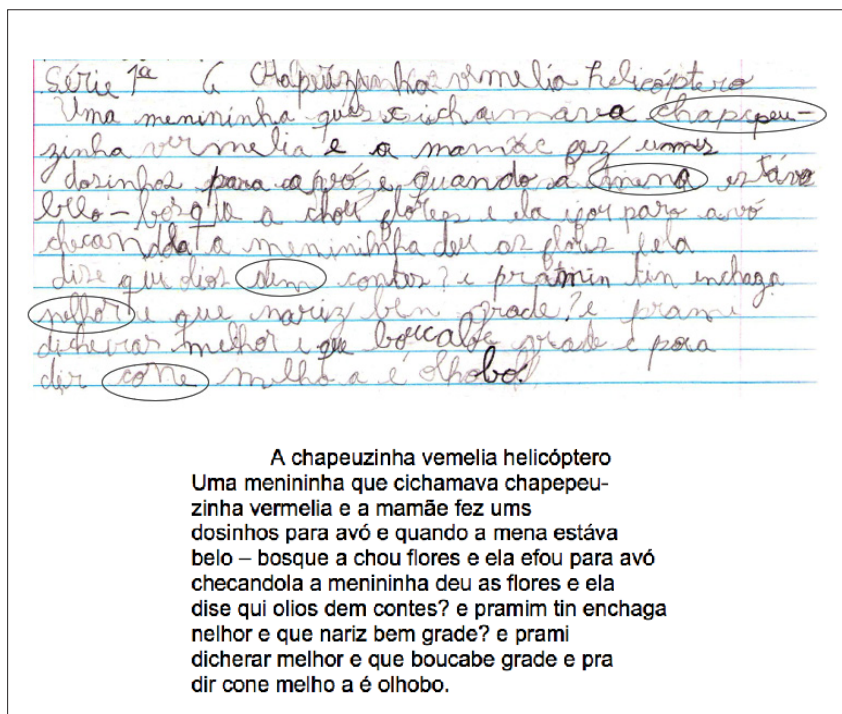 Série 1ª A Chapeuzinha vemelia helicóptero
Uma menininha que cichamava chapepeu-
zinha vermelia e a mamãe fez umms
dosinhos para avó e quando a mena estáva
belo-bosque a chou flores e ela para avó
checandola a menininha deu as flores ela
dise qui olios dem contes? e pramin tin enchaga
nelhor e que nariz ben grade? e prami
dicherar melhor e que boucabe grade e para
dir cone melho a é olhobo.
A chapeuzinha vemelia helicóptero
Uma menininha que cichamava chapepeu-
zinha vermelia e a mamãe fez ums
dosinhos para avó e quando a mena estáva
belo – bosque a chou flores e ela efou para avó
checandola a menininha deu as flores e ela
dise qui olios dem contes? e pramim tin enchaga
nelhor e que nariz bem grade? e prami
dicherar melhor e que boucabe grade e pra
dir cone melho a é olhobo.